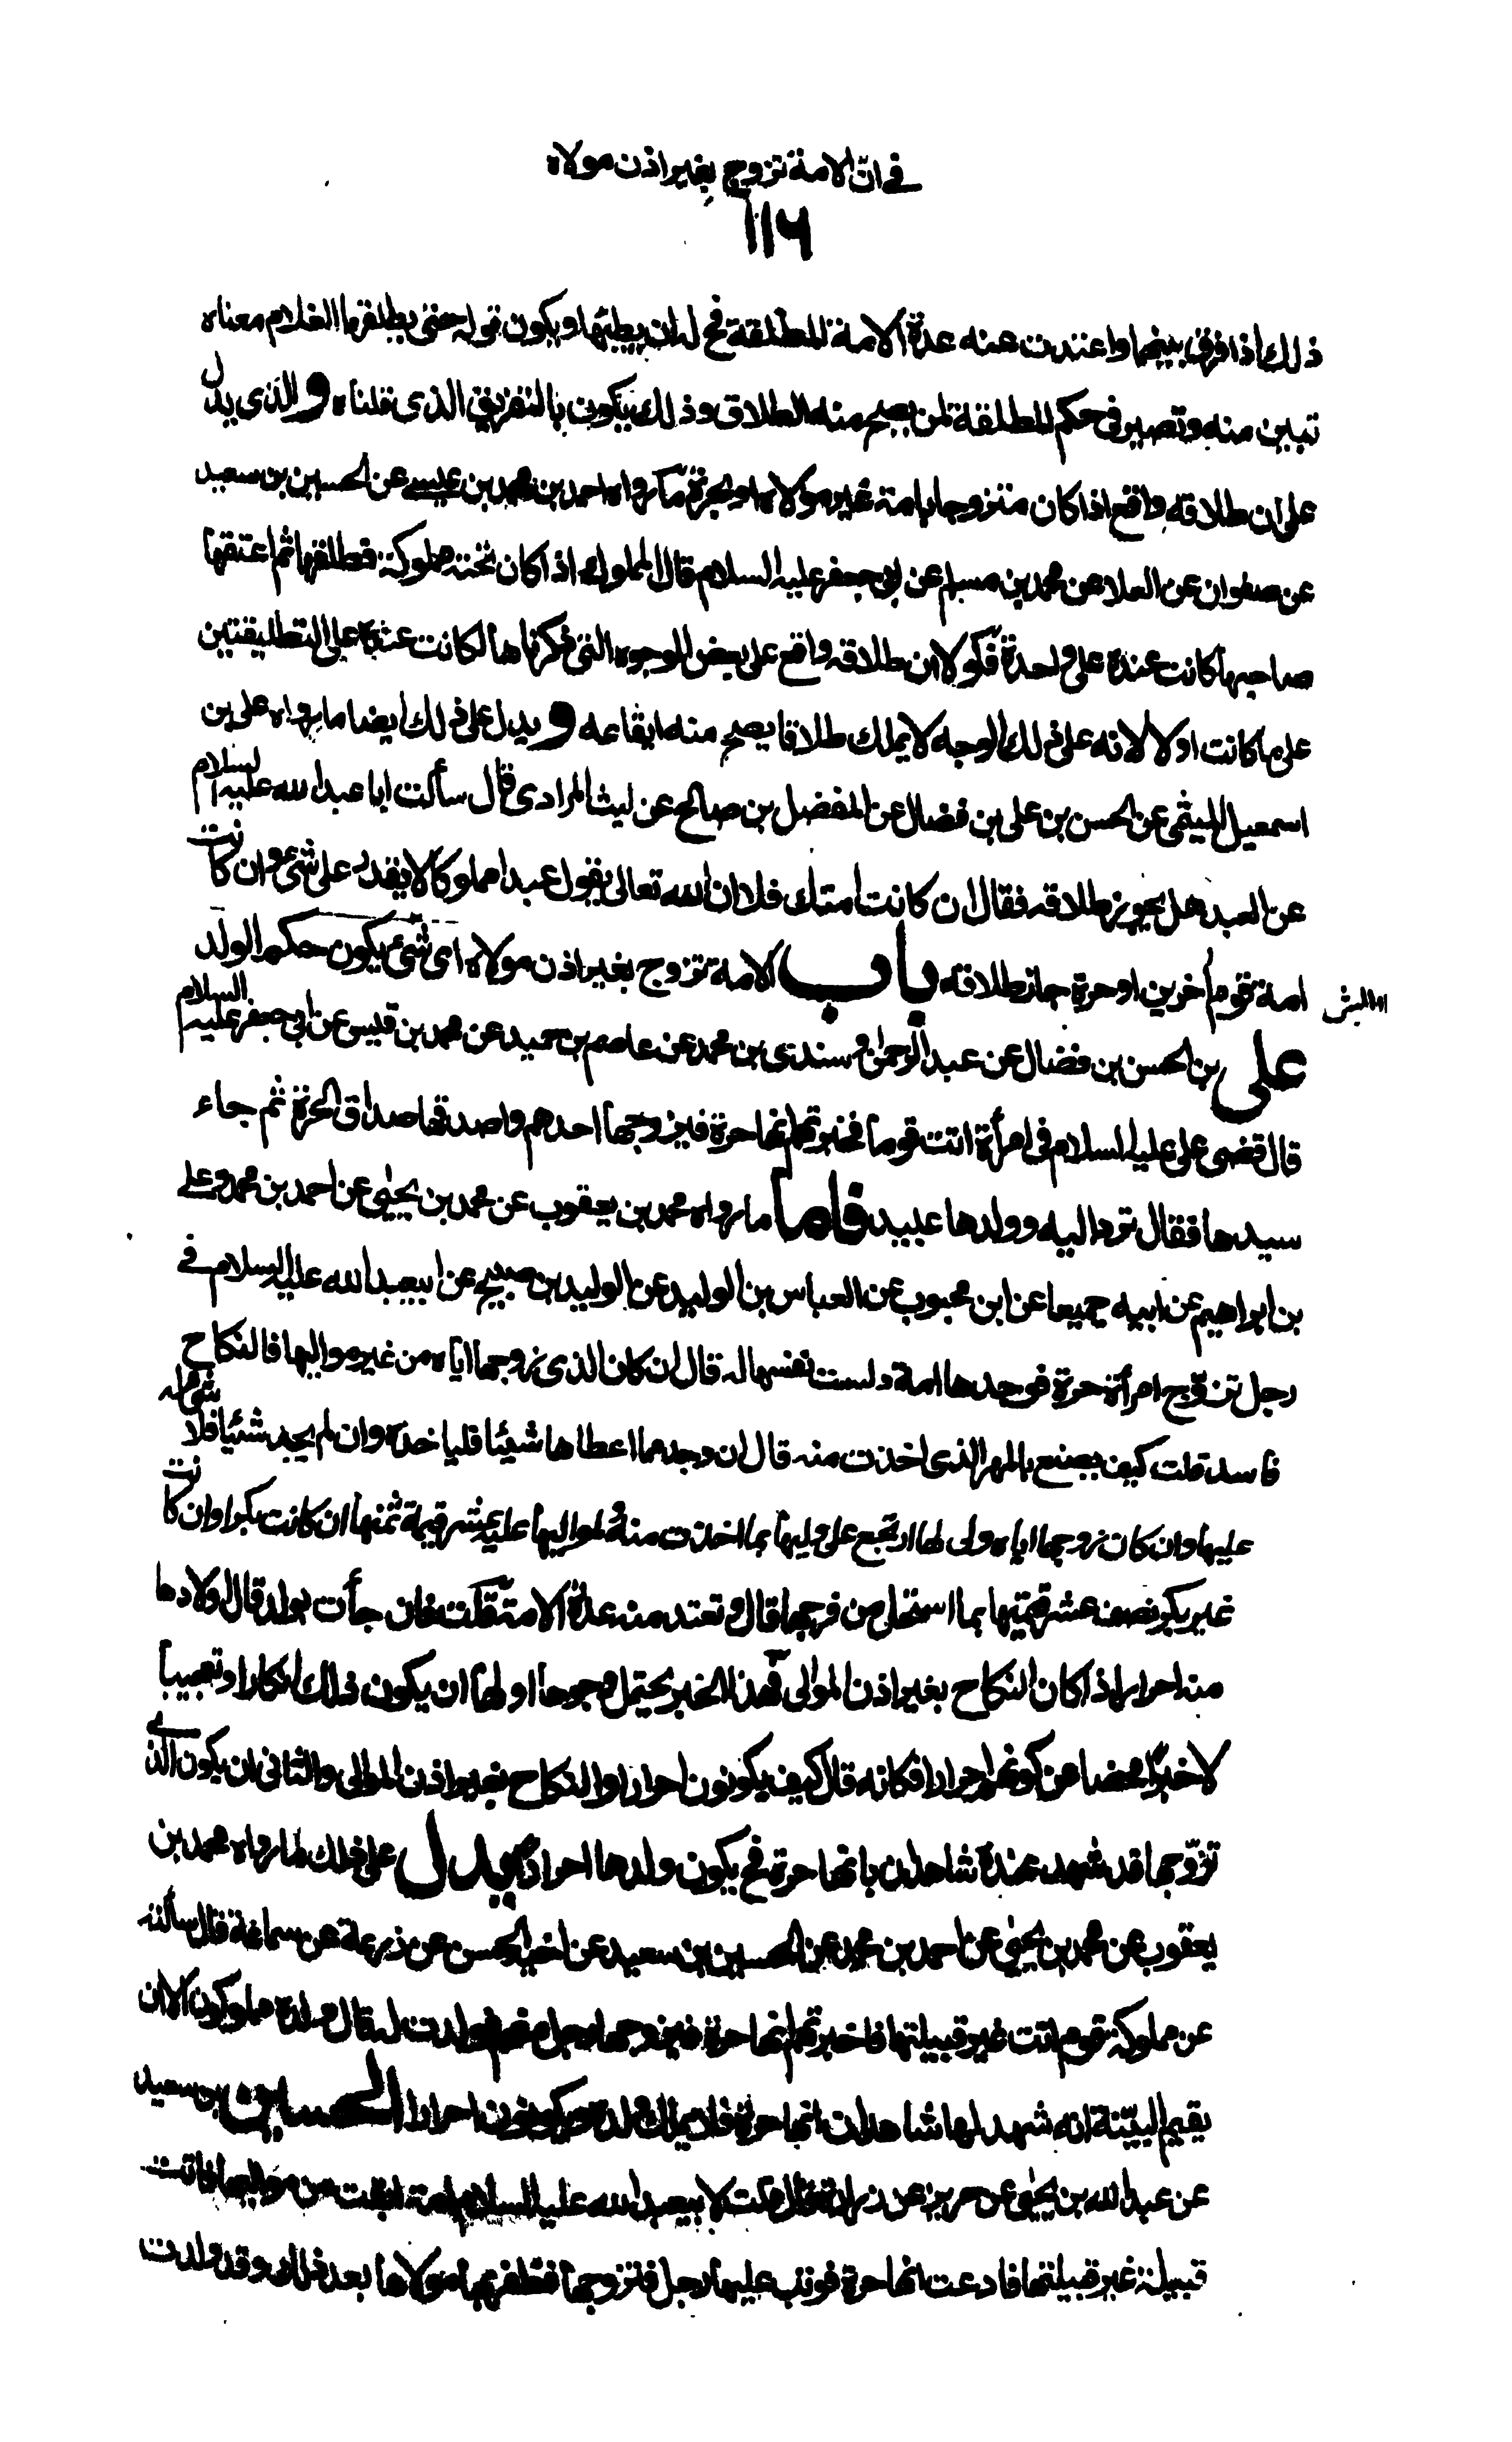 في ان الامة تزوج بغير اذن مولاه
١١٦
ذلك اذا فرق بينهما واعتدت عنه عدة الامة المطلقة فح له ان يطئها ويكون قوله حتى يطلقها الغلام معناه
تبين منه وتصير في حكم المطلقة لمن يصح منه الطلاق وذلك يكون بالتفريق الذي قلناه والذي يدل
على ان طلاقه واقع اذا كان متزوجا بامة غير مولاه او بحرة ما رواه احمد بن محمد بن عيسى عن الحسين بن سعيد
عن صفوان عن العلا عن محمد بن مسلم عن ابي جعفر عليه السلام قال المملوك اذا كان تحته مملوكة فطلقها ثم اعتقها
صاحبها كانت عنده على واحدة فلولا ان طلاقه واقع على بعض الوجوه التي ذكرناها لكانت عنده على التطليقتين
على ما كانت اولا لانه على ذلك الوجه لا يملك طلاقا يصح منه ايقاعه ويدل على ذلك ايضا ما رواه علي بن
اسمعيل الميثمي عن الحسن بن علي بن فضال عن المفضل بن صالح عن ليث المرادي قال سألت ابا عبد الله عليه السلام
عن العبد هل يجوز طلاقه فقال ان كانت امتك فلا ان الله تعالى يقول عبدا مملوكا لا يقدر على شئ وان كانت
امة قوم آخرين او حرة جاز طلاقه باب الامة تزوج بغير اذن مولاه اي شئ يكون حكم الولد
علي بن الحسن بن فضال عن عبد الرحمن وسندي بن محمد عن عاصم بن حميد عن محمد بن قيس عن ابي جعفر عليه السلام
قال قضى علي عليه السلام في امرأة اتت قوما فخبرتهم انها حرة فتزوجها احدهم واصدقها صداق الحرة ثم جاء
سيدها فقال ترد اليه وولدها عبيد فاما ما رواه محمد بن يعقوب عن محمد بن يحيى عن احمد بن محمد وعلي
بن ابراهيم عن ابيه جميعا عن ابن محبوب عن العباس بن الوليد عن الوليد بن صبيح عن ابيعبد الله عليه السلام في
رجل تزوج امرأة حرة فوجدها امة دلست نفسها له قال ان كان الذي زوجها اياه من غير مواليها فالنكاح
فاسد قلت كيف يصنع بالمهر الذي اخذت منه قال ان وجد مما اعطاها شيئا فلياخذه وان لم يجد شيئا فلا شئ له
عليها وان كان زوجها اياه ولي لها ارتجع على وليها بما اخذت منه ولمواليها عليه عشر قيمة ثمنها ان كانت بكرا وان كانت
غير بكر نصف عشر قيمتها بما استحل من فرجها قال وتعتد منه عدة الامة قلت فان جأت بولد قال اولادها
منه احرار اذا كان النكاح بغير اذن الموالي فهذا الخبر يحتمل وجوها اولها ان يكون ذلك انكارا وتعجيبا
لا خبرا محضا عن كونهم احرارا فكانه قال كيف يكونون احرارا والنكاح بغير اذن الموالي والثاني ان يكون الذي
تزوجها قد شهد عنده شاهدان بانها حرة فح يكون ولدها احرارا يدل على ذلك ما رواه محمد بن
يعقوب عن محمد بن يحيى عن احمد بن محمد عن الحسين بن سعيد عن اخيه الحسن عن زرعة عن سماعة قال سألته
عن مملوكة قوم اتت غير قبيلتها فاخبرتهم انها حرة فتزوجها رجل منهم فولدت له قال ولده مملوكون الا ان
يقيم البينة انه شهد لها شاهدان انها حرة فلا يملك ولده ويكونون احرارا الحسين بن سعيد
عن عبد الله بن يحيى عن حريز عن زرارة قال قلت لابيعبد الله عليه السلام امة ابقت من مواليها فاتت
قبيلة غير قبيلتها فادعت انها حرة فوثب عليها رجل فتزوجها فظفر بها مولاها بعد ذلك وقد ولدت